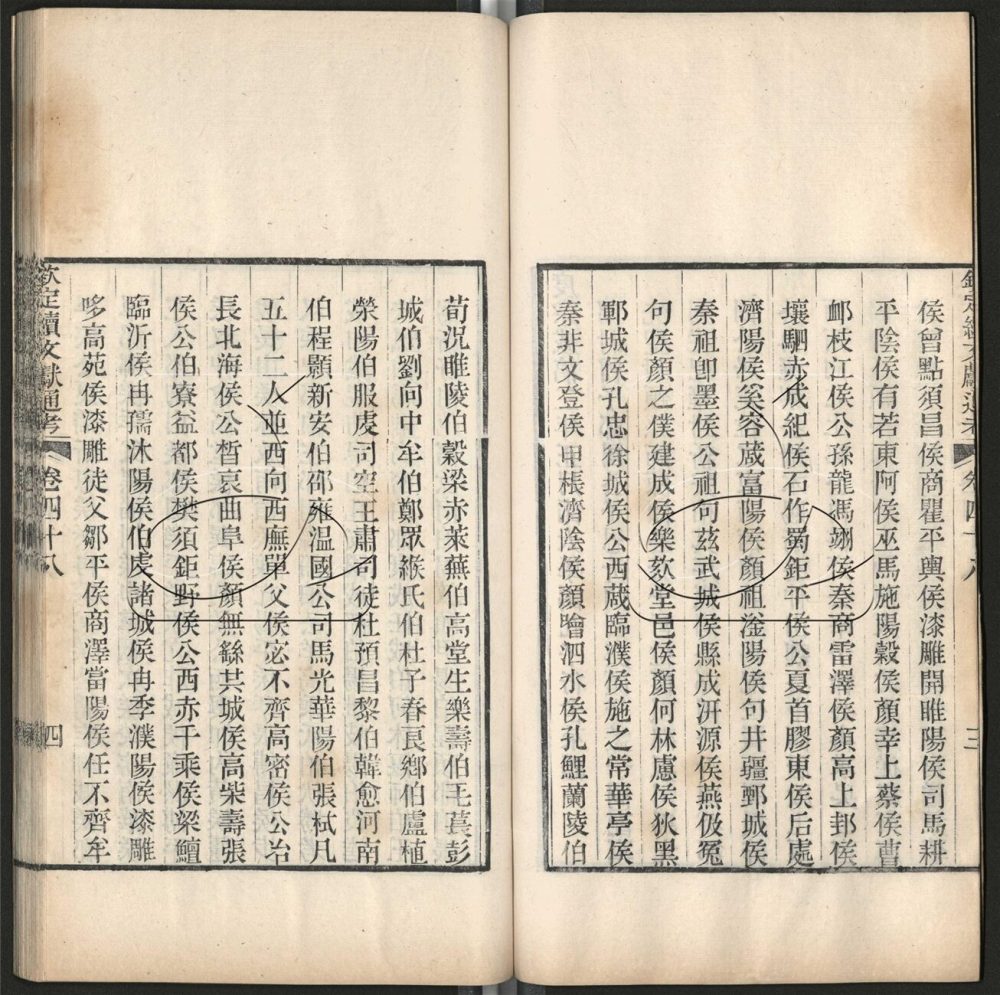 欽定續文獻通考 卷四十八 三
侯曾點須昌侯商瞿平輿侯漆雕開睢陽侯司馬耕
平陰侯有若東阿侯巫馬施陽穀侯顏幸上蔡侯曹
卹枝江侯公孫龍馮翊侯秦商雷澤侯顏高上邽侯
壤駟赤成紀侯石作蜀鉅平侯公夏首膠東侯后處
濟陽侯奚容蒧富陽侯顏祖滏陽侯句井疆鄄城侯
秦祖卽墨侯公祖句茲武城侯縣成汧源侯燕伋冤
句侯顏之僕建成侯樂欬堂邑侯顏何林慮侯狄黑
鄆城侯孔忠徐城侯公西蒧臨濮侯施之常華亭侯
秦非文登侯申棖濟陰侯顏噲泗水侯孔鯉蘭陵伯
荀況睢陵伯穀梁赤萊蕪伯高堂生樂壽伯毛萇彭
城伯劉向中牟伯鄭眾緱氏伯杜子春良鄉伯盧植
滎陽伯服虔司空王肅司徒杜預昌黎伯韓愈河南
伯程顥新安伯邵雍溫國公司馬光華陽伯張栻凡
五十二人並西向西廡單父侯宓不齊高密侯公冶
長北海侯公晳哀曲阜侯顏無繇共城侯高柴壽張
侯公伯寮益都侯樊須鉅野侯公西赤千乘侯梁鱣
臨沂侯冉孺沐陽侯伯虔諸城侯冉季濮陽侯漆雕
哆高苑侯漆雕徒父鄒平侯商澤當陽侯任不齊牟
欽定續文獻通考 卷四十八 四